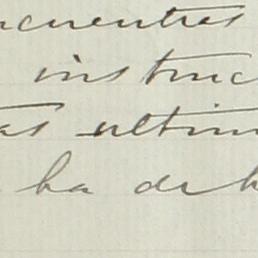 ncuentres
instruc
as ultim
ha de h